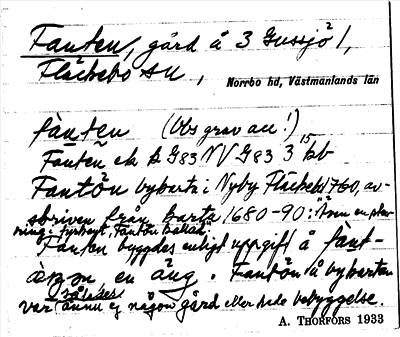 Fanten, gård å 3 Gussjö 2/,
Fläckebo sn,
Norrbo hd, Västmanlands län
fànten (Obs grav acc!)
Fanten ek G83 NV G83 3 15 bb
Fantön bykarta i Nyby Fläckebo 1760, av-
skriven från karta 1680-90: "Även en
i Fantön kallad.
Fanten byggdes enligt uppgift å fànt-
en äng. Fantön å bykartan
var således ännu ej någon gård eller hade bebyggelse.
A. THORFORS 1933